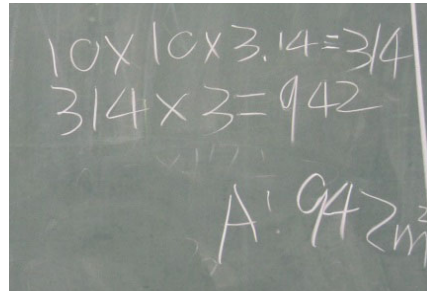 10×10×3.14=314
314×3=942
A: 942m²